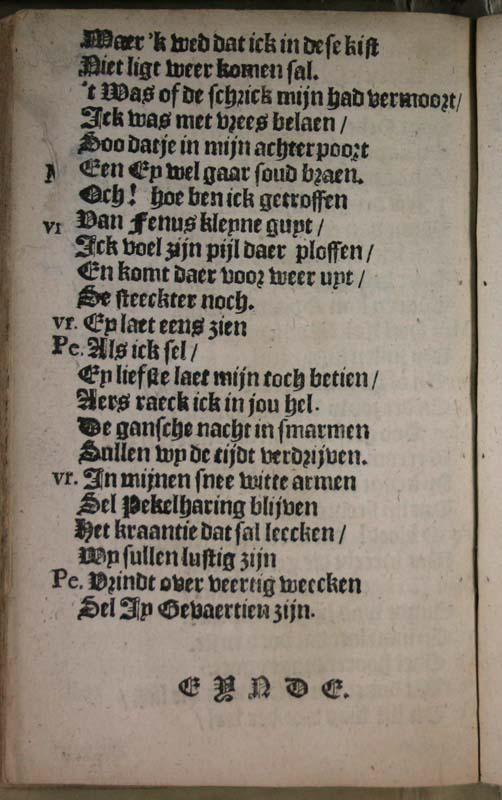 Waer 'k wed dat ick in dese kist
Niet ligt weer komen sal.
't Was of de schrick mijn had vermoort/
Ick was met vrees belaen /
Soo datje in mijn achterpoort
Een Ey wel gaar soud braen.
Och! hoe ben ick getroffen
vr Van Fenus kleyne guyt /
Ick voel zijn pijl daer ploffen /
En komt daer voor weer uyt /
Se steeckter noch.
vr. Ey laet eens zien
Pe. Als ick sel /
Ey liefste laet mijn toch betien /
Aers raeck ick in jou hel.
De gansche nacht in smarmen
Sullen wy de tijdt verdrijven.
vr. In mijnen snee witte armen
Sel Pekelharing blijven
Het kraantie dat sal leecken /
Wy sullen lustig zijn
Pe. Vrindt over veertig weecken
Sel Jy Gevaertien zijn.
EYNDE.